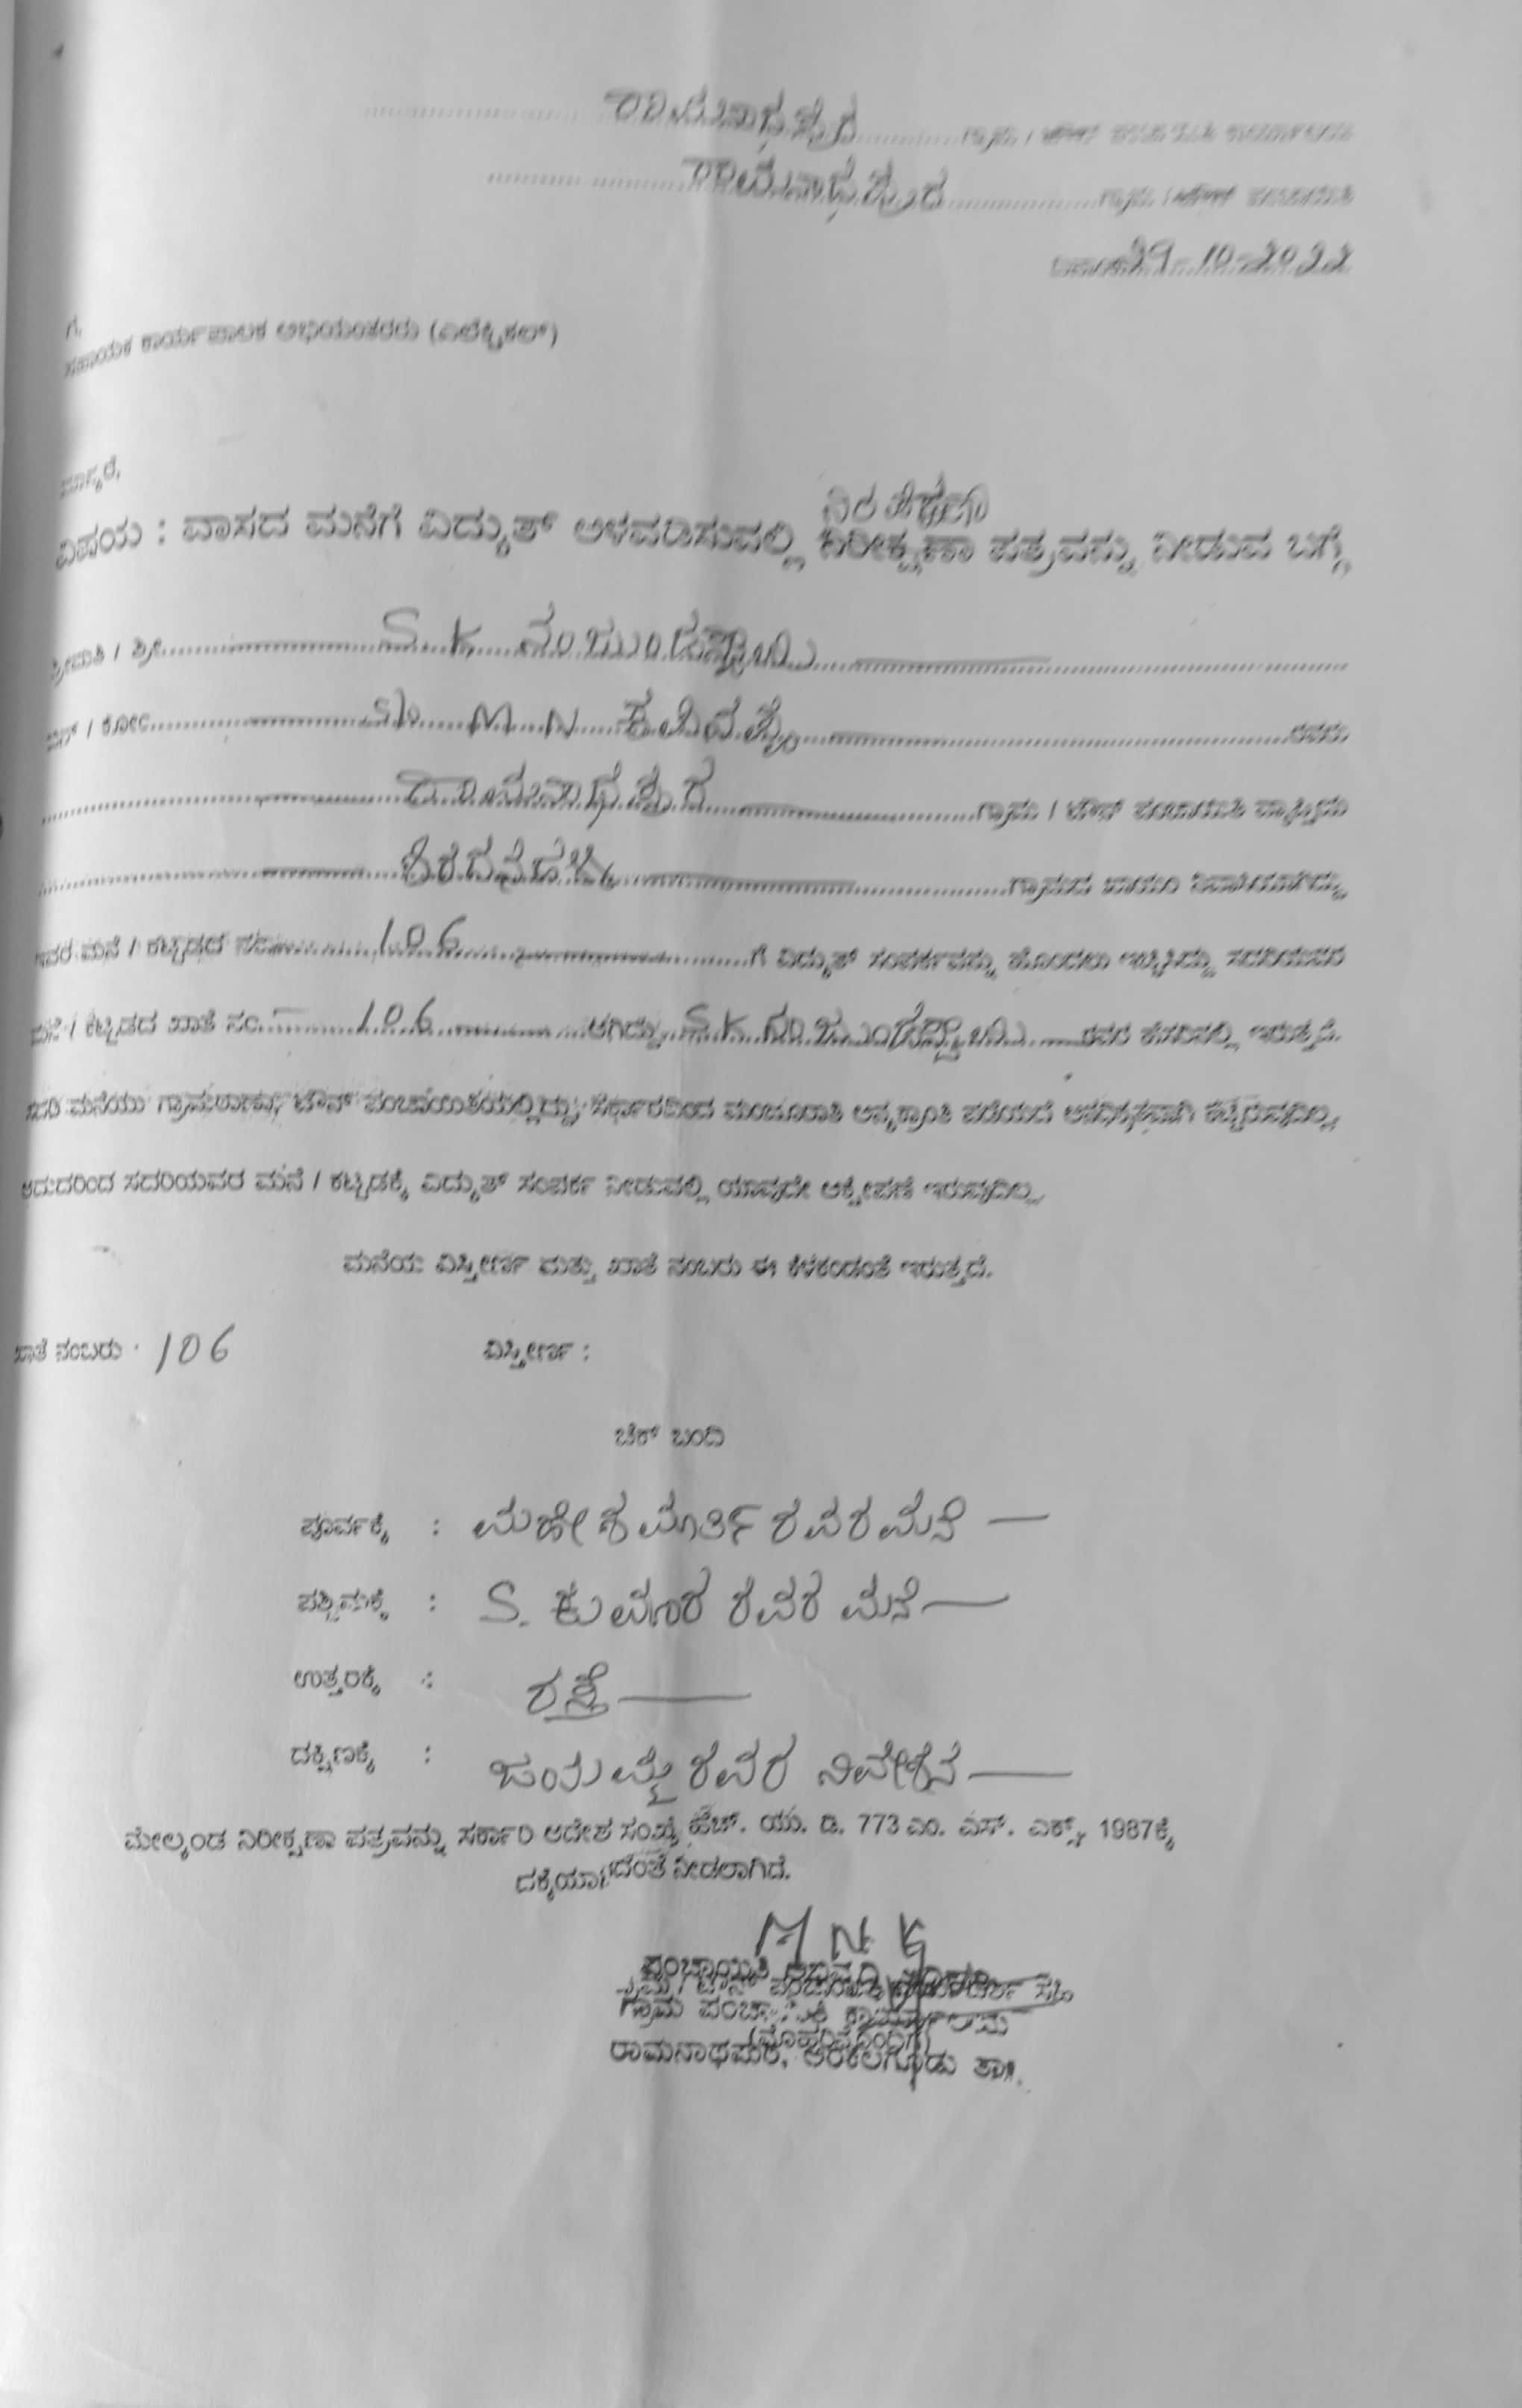 ರಾಮನಾಥಪುರ ಗ್ರಾಮ / ಟೌನ್ ಪಂಚಾಯಿತಿ ಕಾರ್ಯಾಲಯ
ರಾಮನಾಥಪುರ ಗ್ರಾಮ / ಟೌನ್ ಪಂಚಾಯಿತಿ
ದಿನಾಂಕ 29-10-2022
ಗೆ,
ಸಹಾಯಕ ಕಾರ್ಯಪಾಲಕ ಅಭಿಯಂತರರು (ಎಲೆಕ್ಟ್ರಿಕಲ್)
ಮಾನ್ಯರೆ,
ವಿಷಯ : ವಾಸದ ಮನೆಗೆ ವಿದ್ಯುತ್ ಅಳವಡಿಸುವಲ್ಲಿ ನಿರೀಕ್ಷಣಾ ಪತ್ರವನ್ನು ನೀಡುವ ಬಗ್ಗೆ
ಶ್ರೀಮತಿ / ಶ್ರೀ S.K ನಂಜುಂಡಸ್ವಾಮಿ
ಬಿನ್ / ಕೋಂ S/o M N ರವರು
ರಾಮನಾಥಪುರ ಗ್ರಾಮ / ಟೌನ್ ಪಂಚಾಯಿತಿ ವ್ಯಾಪ್ತಿಯ
ಗ್ರಾಮದ ಖಾಯಂ ನಿವಾಸಿಯಾಗಿದ್ದು
ಇವರ ಮನೆ / ಕಟ್ಟಡದ ನಂ. 106 ಗೆ ವಿದ್ಯುತ್ ಸಂಪರ್ಕವನ್ನು ಹೊಂದಲು ಇಚ್ಛಿಸಿದ್ದು ಸದರಿಯವರ
ಮನೆ / ಕಟ್ಟಡದ ಖಾತೆ ನಂ. 106 ಆಗಿದ್ದು S K ನಂಜುಂಡಸ್ವಾಮಿ ರವರ ಹೆಸರಿನಲ್ಲಿ ಇರುತ್ತದೆ.
ಸದರಿ ಮನೆಯು ಗ್ರಾಮಠಾಣಾ/ ಟೌನ್ ಪಂಚಾಯಿತಿಯಲ್ಲಿದ್ದು, ಸರ್ಕಾರದಿಂದ ಮಂಜೂರಾತಿ ಪಡೆಯದೆ ಅನಧಿಕೃತವಾಗಿ ಕಟ್ಟಿರುವುದಿಲ್ಲ
ಆದುದರಿಂದ ಸದರಿಯವರ ಮನೆ / ಕಟ್ಟಡಕ್ಕೆ ವಿದ್ಯುತ್ ಸಂಪರ್ಕ ನೀಡುವಲ್ಲಿ ಯಾವುದೇ ಆಕ್ಷೇಪಣೆ ಇರುವುದಿಲ್ಲ
ಮನೆಯ ವಿಸ್ತೀರ್ಣ ಮತ್ತು ಖಾತೆ ನಂಬರು ಈ ಕೆಳಕಂಡಂತೆ ಇರುತ್ತದೆ.
ಖಾತೆ ನಂಬರು : 106 ವಿಸ್ತೀರ್ಣ :
ಚೆಕ್ ಬಂದಿ
ಪೂರ್ವಕ್ಕೆ : ಮಹೇಶ ಮೂರ್ತಿ ರವರ ಮನೆ
ಪಶ್ಚಿಮಕ್ಕೆ : S. ಕುಮಾರ ರವರ ಮನೆ
ಉತ್ತರಕ್ಕೆ : ರಸ್ತೆ
ದಕ್ಷಿಣಕ್ಕೆ : ಜಯಮ್ಮ ರವರ ನಿವೇಶನ
ಮೇಲ್ಕಂಡ ನಿರೀಕ್ಷಣಾ ಪತ್ರವನ್ನು ಸರ್ಕಾರಿ ಆದೇಶ ಸಂಖ್ಯೆ ಹೆಚ್. ಯು. ಡಿ. 773 ಎಂ. ಎಸ್. ಎಕ್ಸ್. 1987ಕ್ಕೆ
ದಕ್ಕೆಯಾಗದಂತೆ ನೀಡಲಾಗಿದೆ.
M N K
ಪಂಚಾಯಿತಿ ಅಭಿವೃದ್ಧಿ ಅಧಿಕಾರಿ
ಗ್ರಾಮ ಪಂಚಾಯಿತಿ ಕಾರ್ಯಾಲಯ
(ಮೊಹರಿನೊಂದಿಗೆ)
ರಾಮನಾಥಪುರ, ಅರಕಲಗೂಡು ತಾ||.